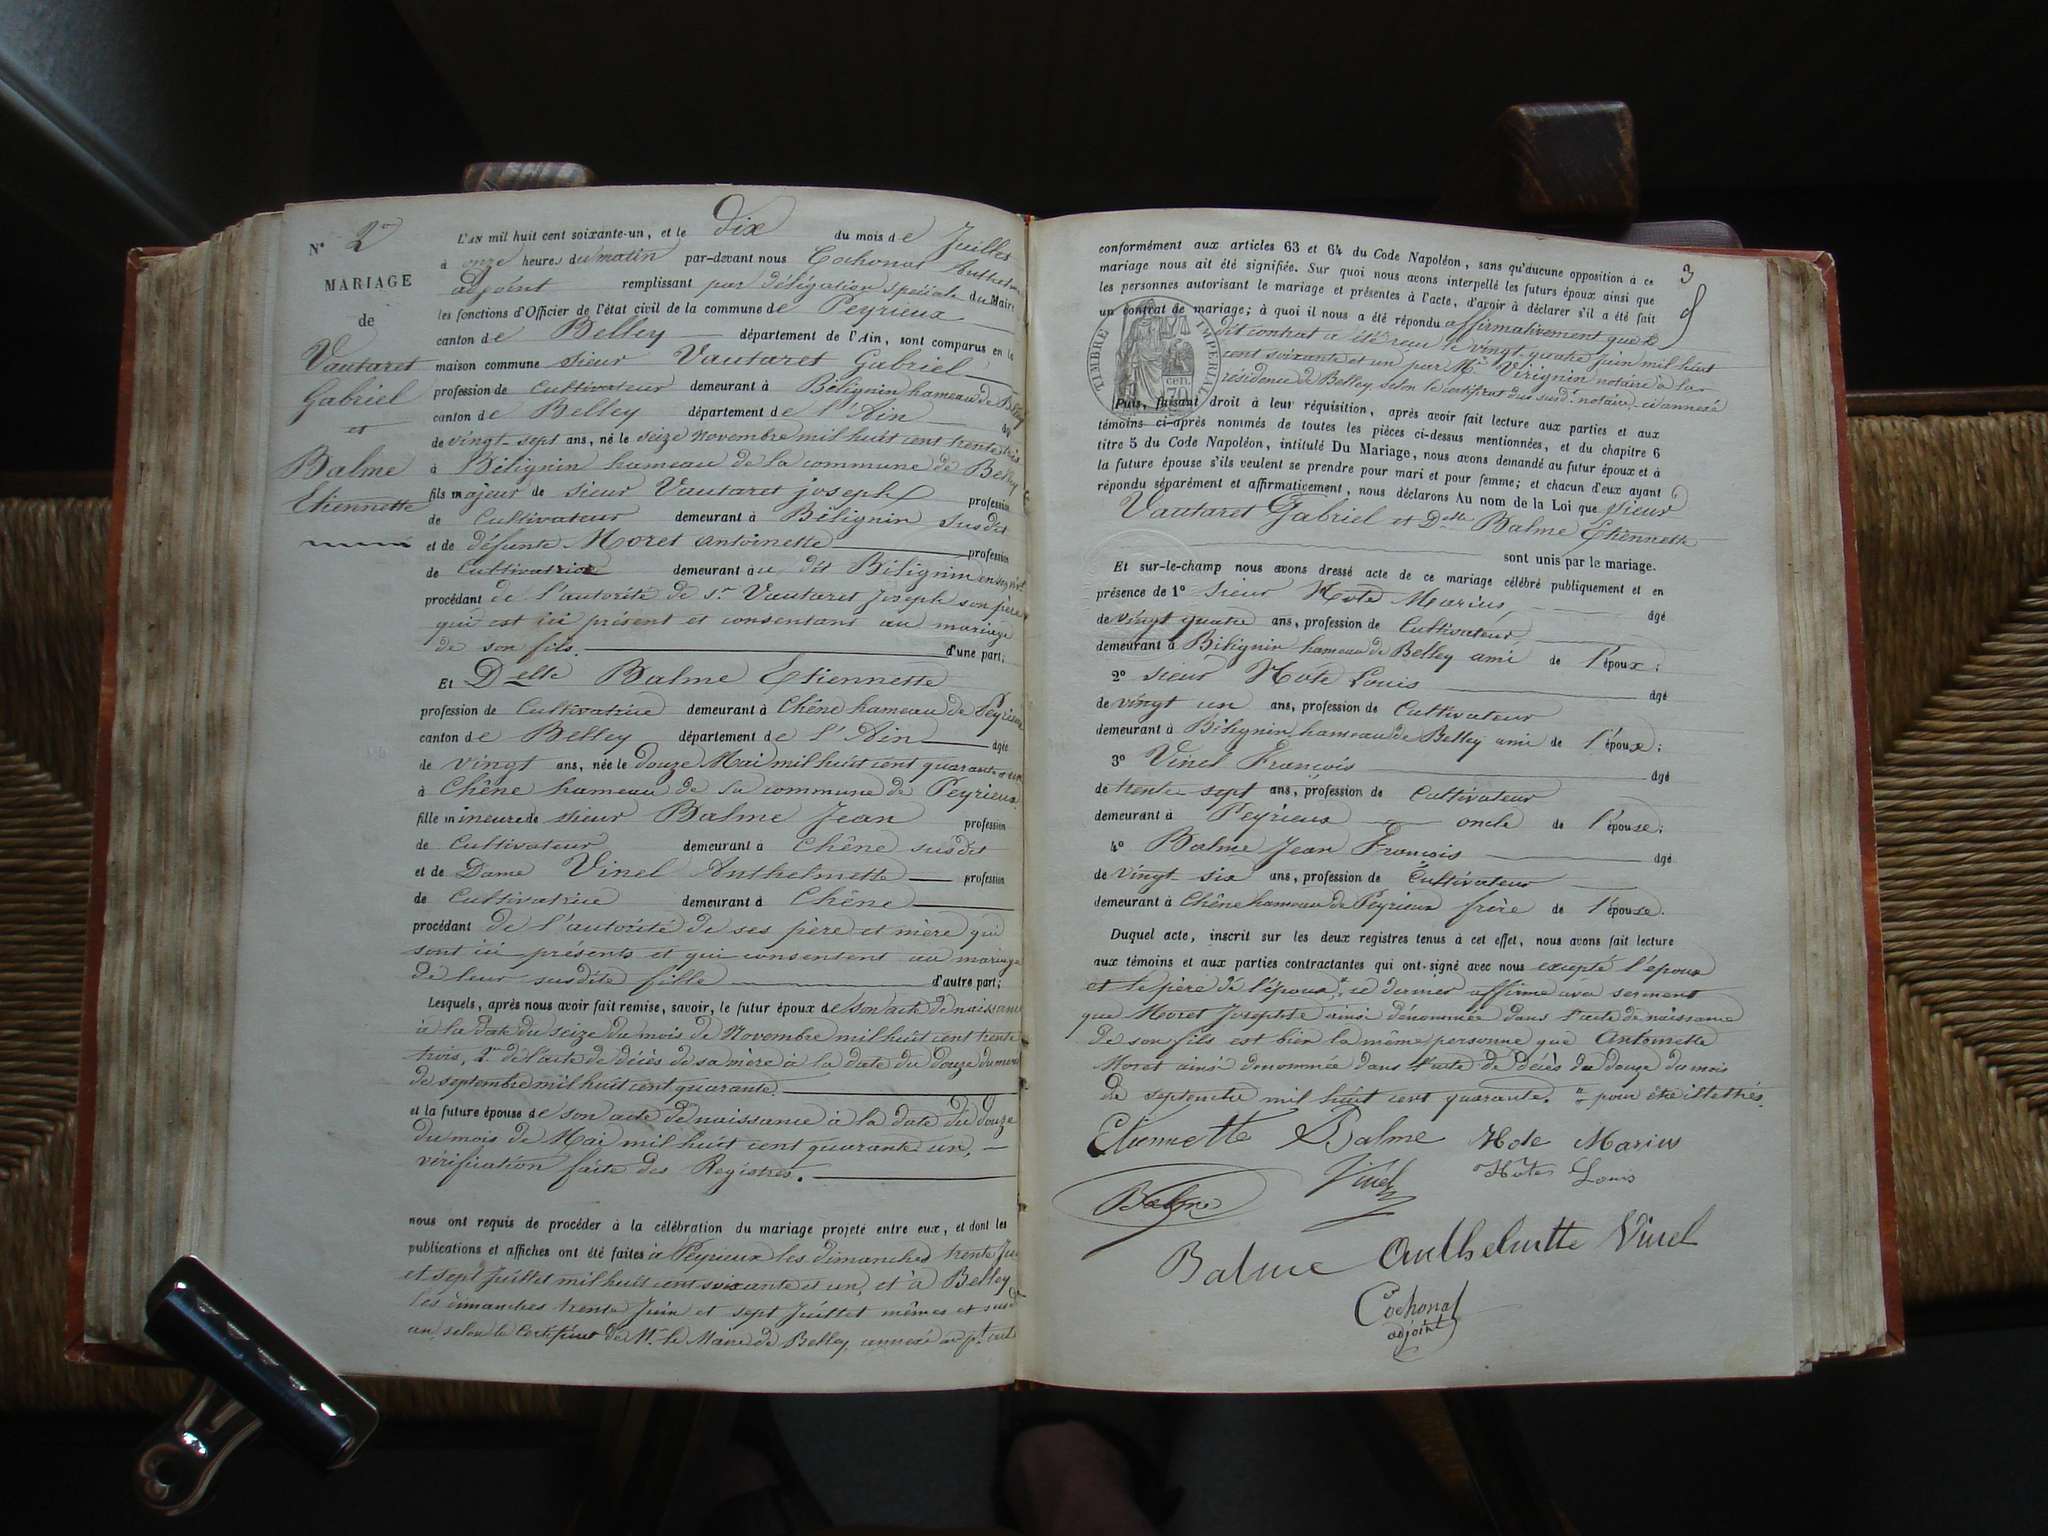 N° 2
MARIAGE
de
Vautaret
Gabriel
et
Balme
Etiennette
L'AN mil huit cent soixante-un, et le dix du mois de Juillet
à onze heures du matin par-devant nous Cochonat Anthelme
adjoint remplissant par délégation spéciale du Maire
les fonctions d'Officier de l'état civil de la commune de Peyrieux
canton de Belley département de l'Ain, sont comparus en la
maison commune sieur Vautaret Gabriel
profession de Cultivateur demeurant à Bélignin hameau de Belley
canton de Belley département de l'Ain âgé
de vingt-sept ans, né le seize novembre mil huit cent trente trois
à Bélignin hameau de la commune de Belley
fils majeur de sieur Vautaret joseph profession
de Cultivateur demeurant à Bélignin susdit
et de défunte Moret Antoinette profession
de Cultivatrice demeurant au dit Bélignin en son vivt
procédant de l'autorité de Sr Vautaret Joseph son père
qui est ici présent et consentant au mariage
de son fils. d'une part;
Et Delle Balme Etiennette
profession de Cultivatrice demeurant à Chêne hameau de Peyrieux
canton de Belley département de l'Ain âgée
de vingt ans, née le douze Mai mil huit cent quarante et un
à Chêne hameau de la commune de Peyrieux
fille mineure de sieur Balme Jean profession
de Cultivateur demeurant à Chêne susdit
et de Dame Vinel Anthelmette profession
de Cultivatrice demeurant à Chêne
procédant de l'autorité de ses père et mère qui
sont ici présents et qui consentent au mariage
de leur susdite fille d'autre part;
Lesquels, après nous avoir fait remise, savoir, le futur époux de son acte de naissance
à la date du seize du mois de Novembre mil huit cent trente
trois, 2° de l'acte de décès de sa mère à la date du douze du mois
de septembre mil huit cent quarante.
et la future épouse de son acte de naissance à la date du douze
du mois de Mai mil huit cent quarante un,
vérification faite des Registres.
nous ont requis de procéder à la célébration du mariage projeté entre eux, et dont les
publications et affiches ont été faites à Peyrieux les dimanches trente Juin
et sept Juillet mil huit cent soixante et un, et à Belley
les dimanches trente Juin et sept Juillet mêmes et susdit
an selon le Certificat de Mr le Maire de Belley annexé au pt acte
3
conformément aux articles 63 et 64 du Code Napoléon, sans qu'aucune opposition à ce
mariage nous ait été signifiée. Sur quoi nous avons interpellé les futurs époux ainsi que
les personnes autorisant le mariage et présentes à l'acte, d'avoir à déclarer s'il a été fait
un contrat de mariage; à quoi il nous a été répondu affirmativement que le
dit contrat a été reçu le vingt-quatre Juin mil huit
cent soixante et un par Me Virignin notaire à la
résidence de Belley, selon le certificat du susd. notaire, ci annexé
TIMBRE IMPERIAL
cen.
Puis, faisant droit à leur réquisition, après avoir fait lecture aux parties et aux
témoins ci-après nommés de toutes les pièces ci-dessus mentionnées, et du chapitre 6
titre 5 du Code Napoléon, intitulé Du Mariage, nous avons demandé au futur époux et à
la future épouse s'ils veulent se prendre pour mari et pour femme; et chacun d'eux ayant
répondu séparément et affirmativement, nous déclarons Au nom de la Loi que sieur
Vautaret Gabriel et Delle Balme Etiennette
sont unis par le mariage.
Et sur-le-champ nous avons dressé acte de ce mariage célébré publiquement et en
présence de 1° sieur Hote Marius, âgé
de vingt quatre ans, profession de Cultivateur
demeurant à Bélignin hameau de Belley ami de l'époux;
2° sieur Hote Louis âgé
de vingt un ans, profession de Cultivateur
demeurant à Bélignin hameau de Belley ami de l'époux;
3° Vinel François âgé
de trente sept ans, profession de Cultivateur
demeurant à Peyrieux oncle de l'épouse;
4° Balme Jean François âgé
de vingt six ans, profession de Cultivateur
demeurant à Chêne hameau de Peyrieux frère de l'épouse.
Duquel acte, inscrit sur les deux registres tenus à cet effet, nous avons fait lecture
aux témoins et aux parties contractantes qui ont signé avec nous excepté l'époux
et le père de l'époux, ce dernier affirme avec serment
que Moret Josephte ainsi dénommée dans l'acte de naissance
de son fils est bien la même personne que Antoinette
Moret ainsi dénommée dans l'acte de décès du douze du mois
de septembre mil huit cent quarante. pour être illettrés.
Etiennette Balme Hote Marius
Hotes Louis
Balme Vinel
Balme Anthelmette Vinel
Cochonat
adjoint